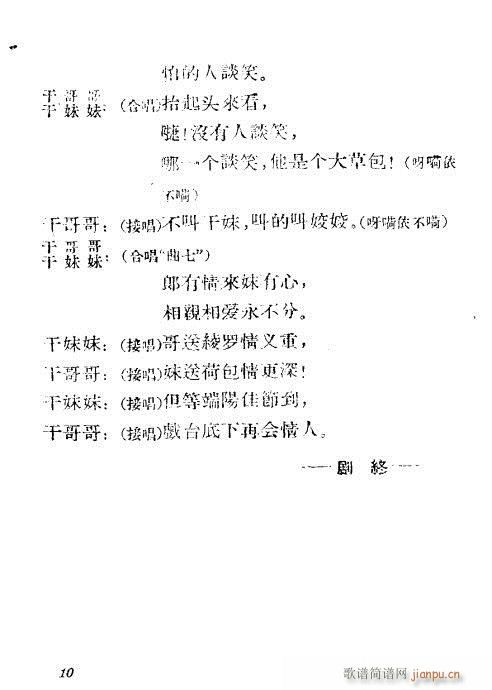 怕的人談笑。
干哥哥
干妹妹：(合唱)抬起头來看，
㗳！沒有人談笑，
哪一个談笑，他是个大草包！(呀嗬依
不嗬)
干哥哥：(接唱)不叫干妹，叫的叫姣姣。(呀嗬依不嗬)
干哥哥
干妹妹：(合唱“曲七”)
郎有情來妹有心，
相親相爱永不分。
干妹妹：(接唱)哥送綾罗情义重，
干哥哥：(接唱)妹送荷包情更深！
干妹妹：(接唱)但等端陽佳節到，
干哥哥：(接唱)戲台底下再会情人。
——劇 終——
10
歌谱简谱网
jianpu.cn